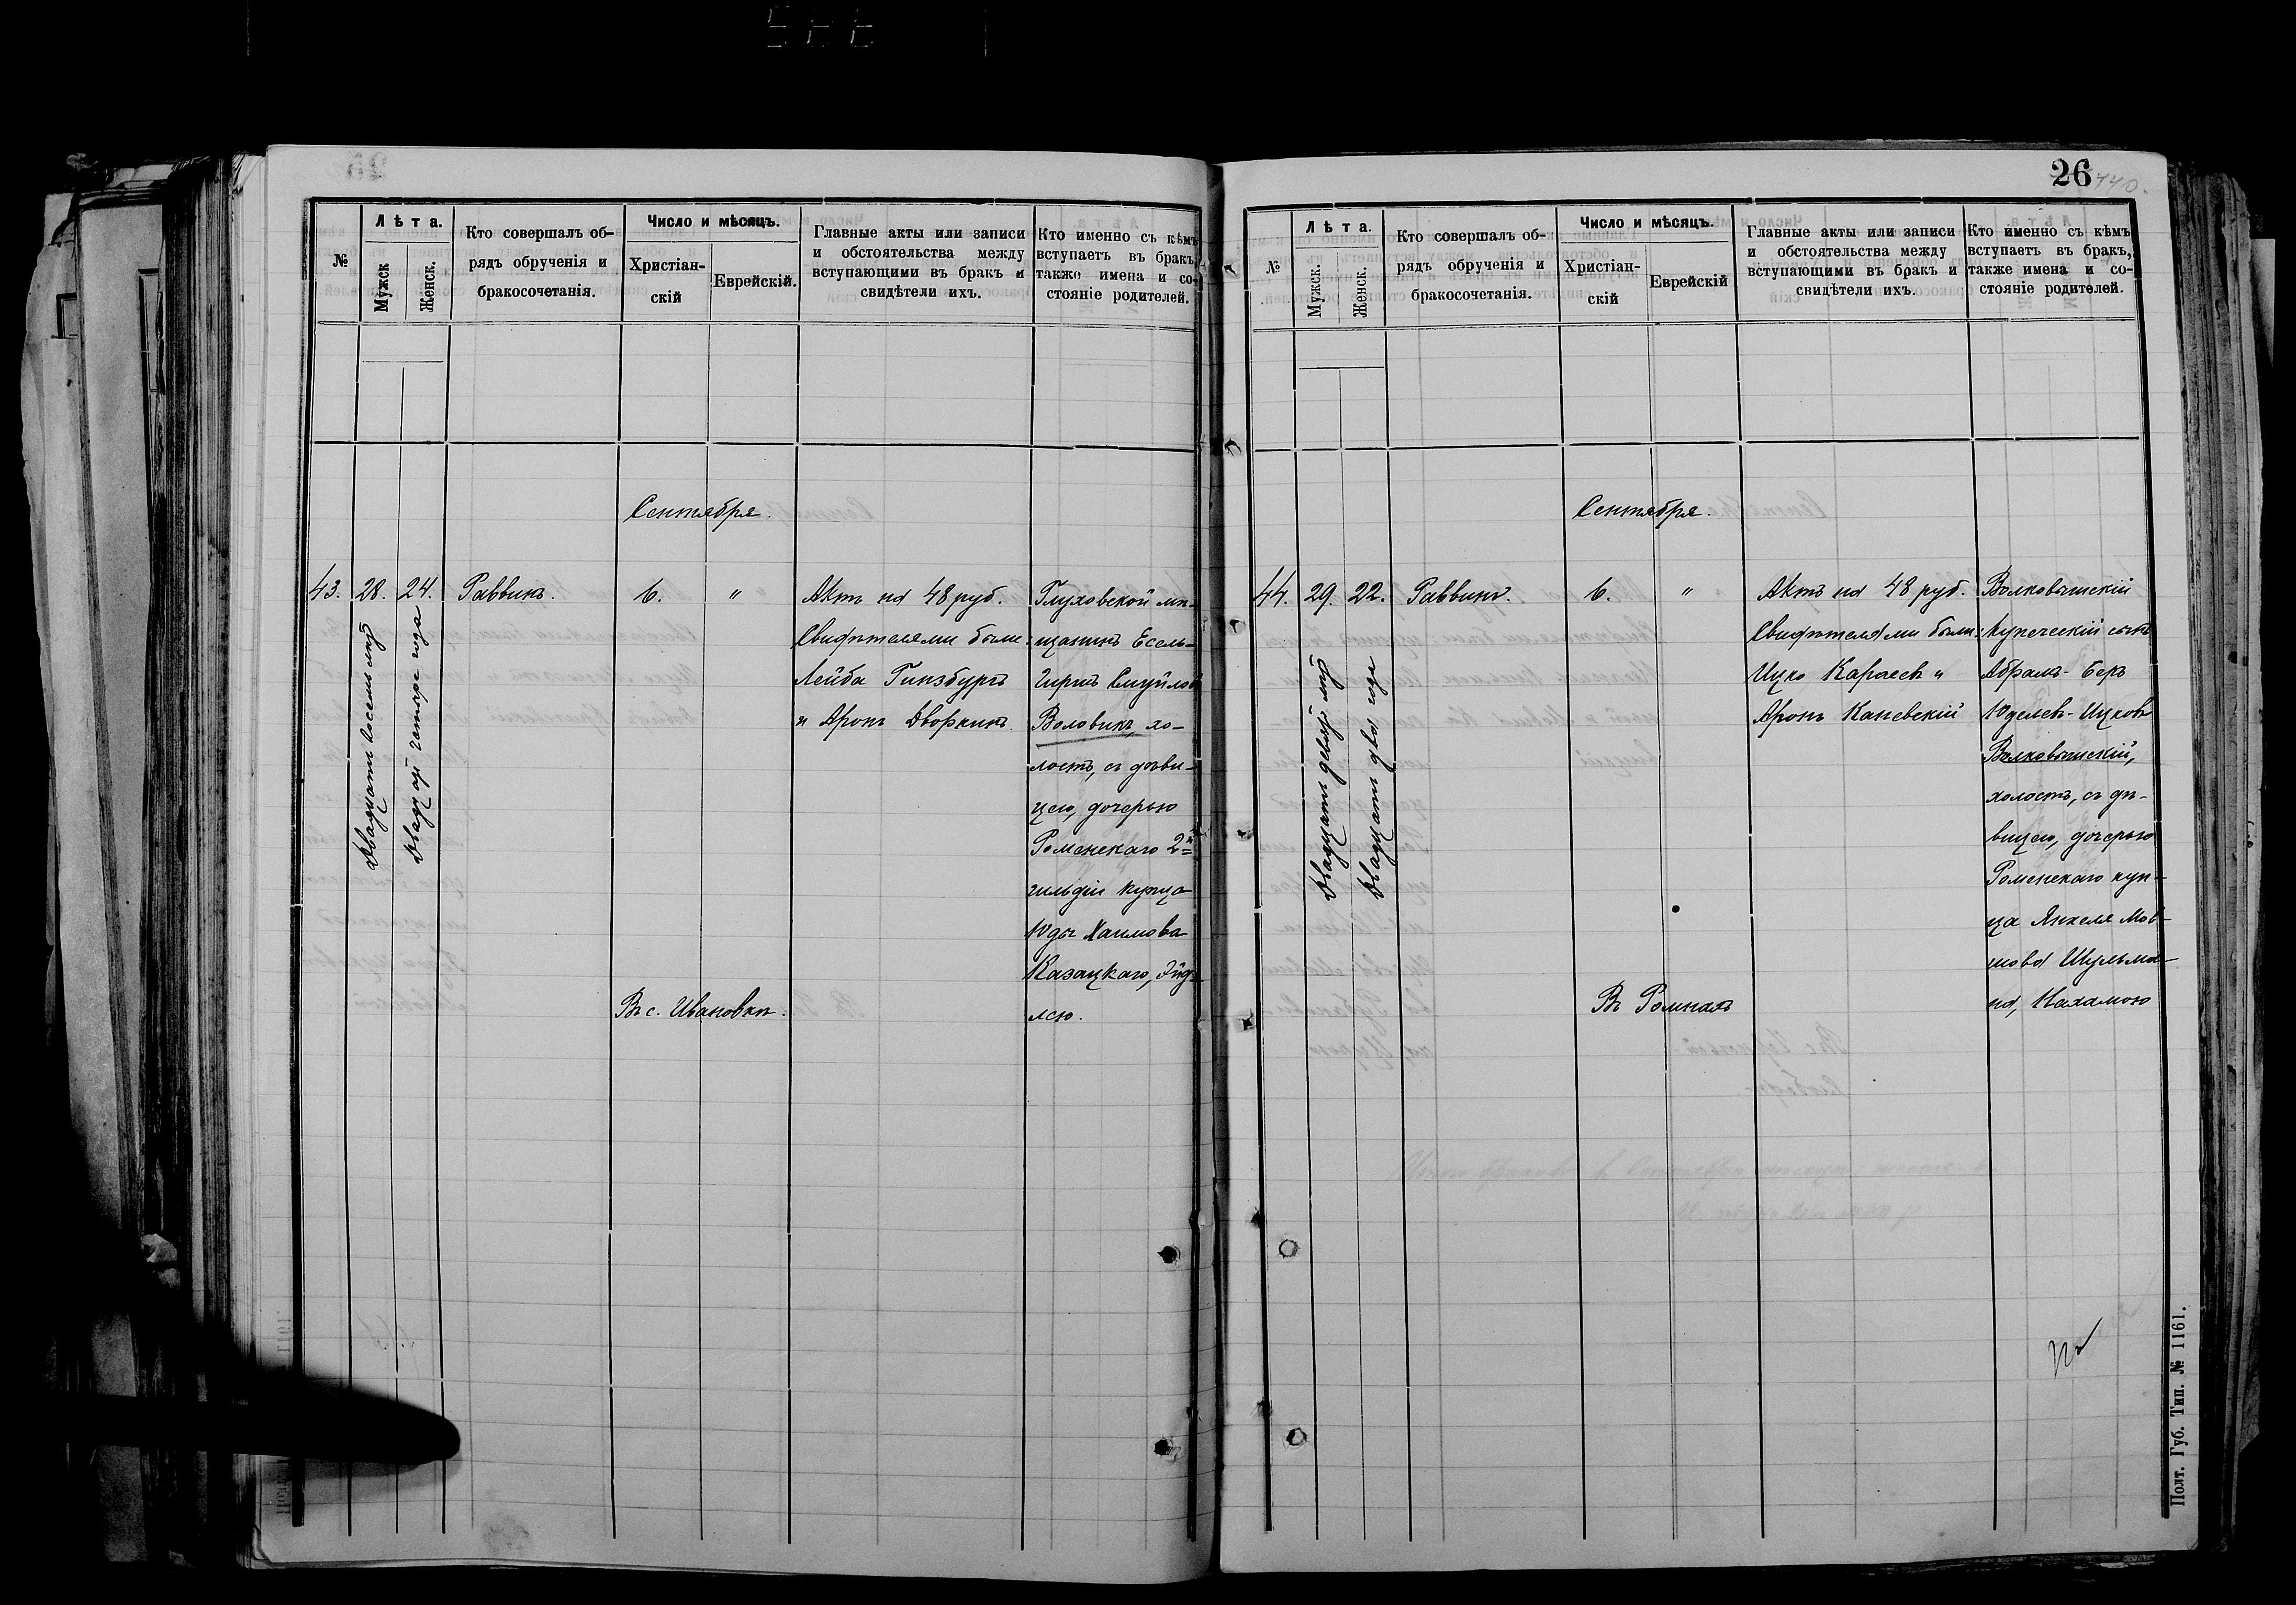 №
Лѣта.
Мужск
Женск.
Кто совершалъ об-
рядъ обрученія и
бракосочетанія.
Число и мѣсяцъ.
Христіан-
скій
Еврейскій.
Главные акты или записи
и обстоятельства между
вступающими въ бракъ и
свидѣтели ихъ.
Кто именно съ кѣмъ
вступаетъ въ бракъ,
также имена и со-
стояніе родителей.
Сентября.
43.
28.
Двадцать восемь лѣтъ
24.
Двадцать четыре года
Раввинъ.
6.
"
Въ с. Ивановкѣ.
Актъ на 48 руб.
Свидѣтелями были:
Лейба Гинзбургъ
и Аронъ Дворкинъ.
Глуховской мѣ-
щанинъ Есель-
Гиршъ Шмуйловъ
Воловикъ, хо-
лостъ, съ дѣви-
цею, дочерью
Роменскаго 2й
гильдіи купца
Юды Хаимова
Казацкаго,
лею.
26
№
Лѣта.
Мужск.
Женск.
Кто совершалъ об-
рядъ обрученія и
бракосочетанія.
Число и мѣсяцъ.
Христіан-
скій
Еврейскій
Главные акты или записи
и обстоятельства между
вступающими въ бракъ и
свидѣтели ихъ.
Кто именно съ кѣмъ
вступаетъ въ бракъ,
также имена и со-
стояніе родителей.
Сентября.
44.
29.
Двадцать девять лѣтъ
22.
Двадцать два года
Раввинъ.
6.
"
Въ Ромнахъ
Актъ на 48 руб.
Свидѣтелями были:
Ицко Карасев и
Аронъ Каневскій
Волковышскій
купеческій сынъ
Абрамъ-Беръ
Юделев-Ицковъ
Волковышскій,
холостъ, съ дѣ-
вицею, дочерью
Роменскаго куп-
ца Янкеля Мов-
шова Шульма-
на, Нахамою
Полт. Губ. Тип. № 1161.